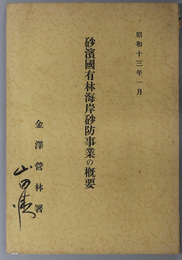 昭和十三年一月
砂濱國有林海岸砂防事業の概要
金澤營林署